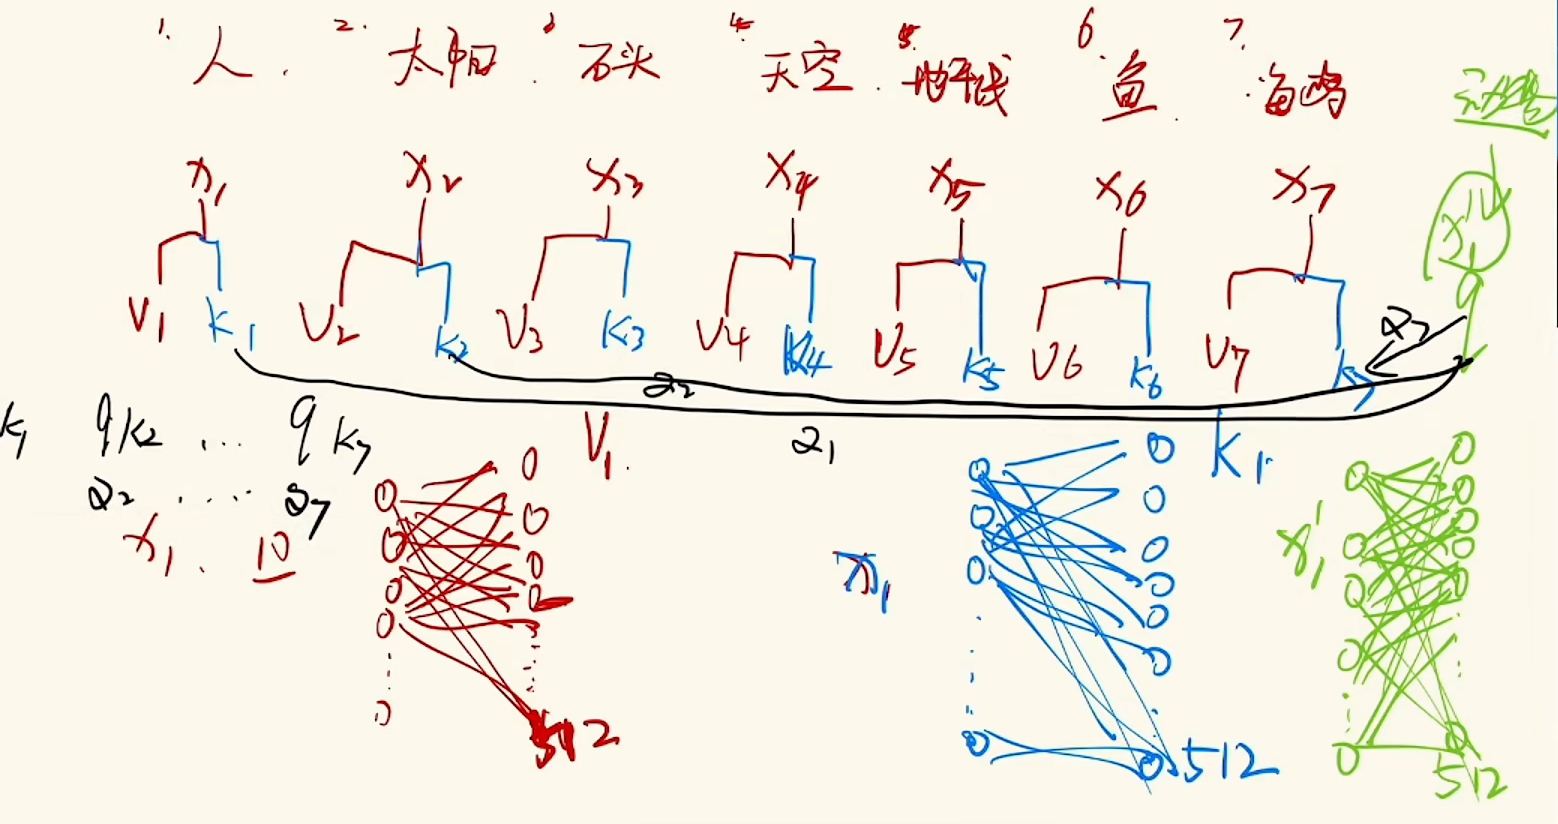 1. 人. 2. 太阳. 3 石头 4. 天空. 5. 地平线 6. 鱼. 7. 海鸥
x₁ x₂ x₃ x₄ x₅ x₆ x₇ x₁'
V₁ K₁ V₂ K₂ V₃ K₃ V₄ K₄ V₅ K₅ V₆ K₆ V₇ K₇ q a₇
a₂
k₁ qk₂ ... qk₇ V₁. a₁ K₁.
a₂ ..... a₇
x₁. 10 x₁ x₁'
512 512 512